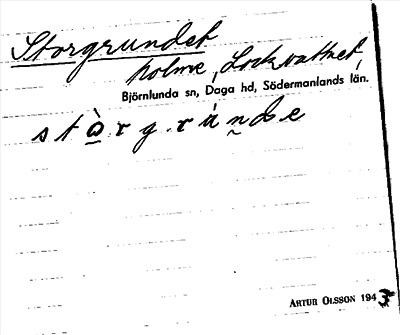 Storgrundet
holme, Lockvattnet,
Björnlunda sn, Daga hd, Södermanlands län.
stò̲rgrùn̰de
ARTUR OLSSON 1943